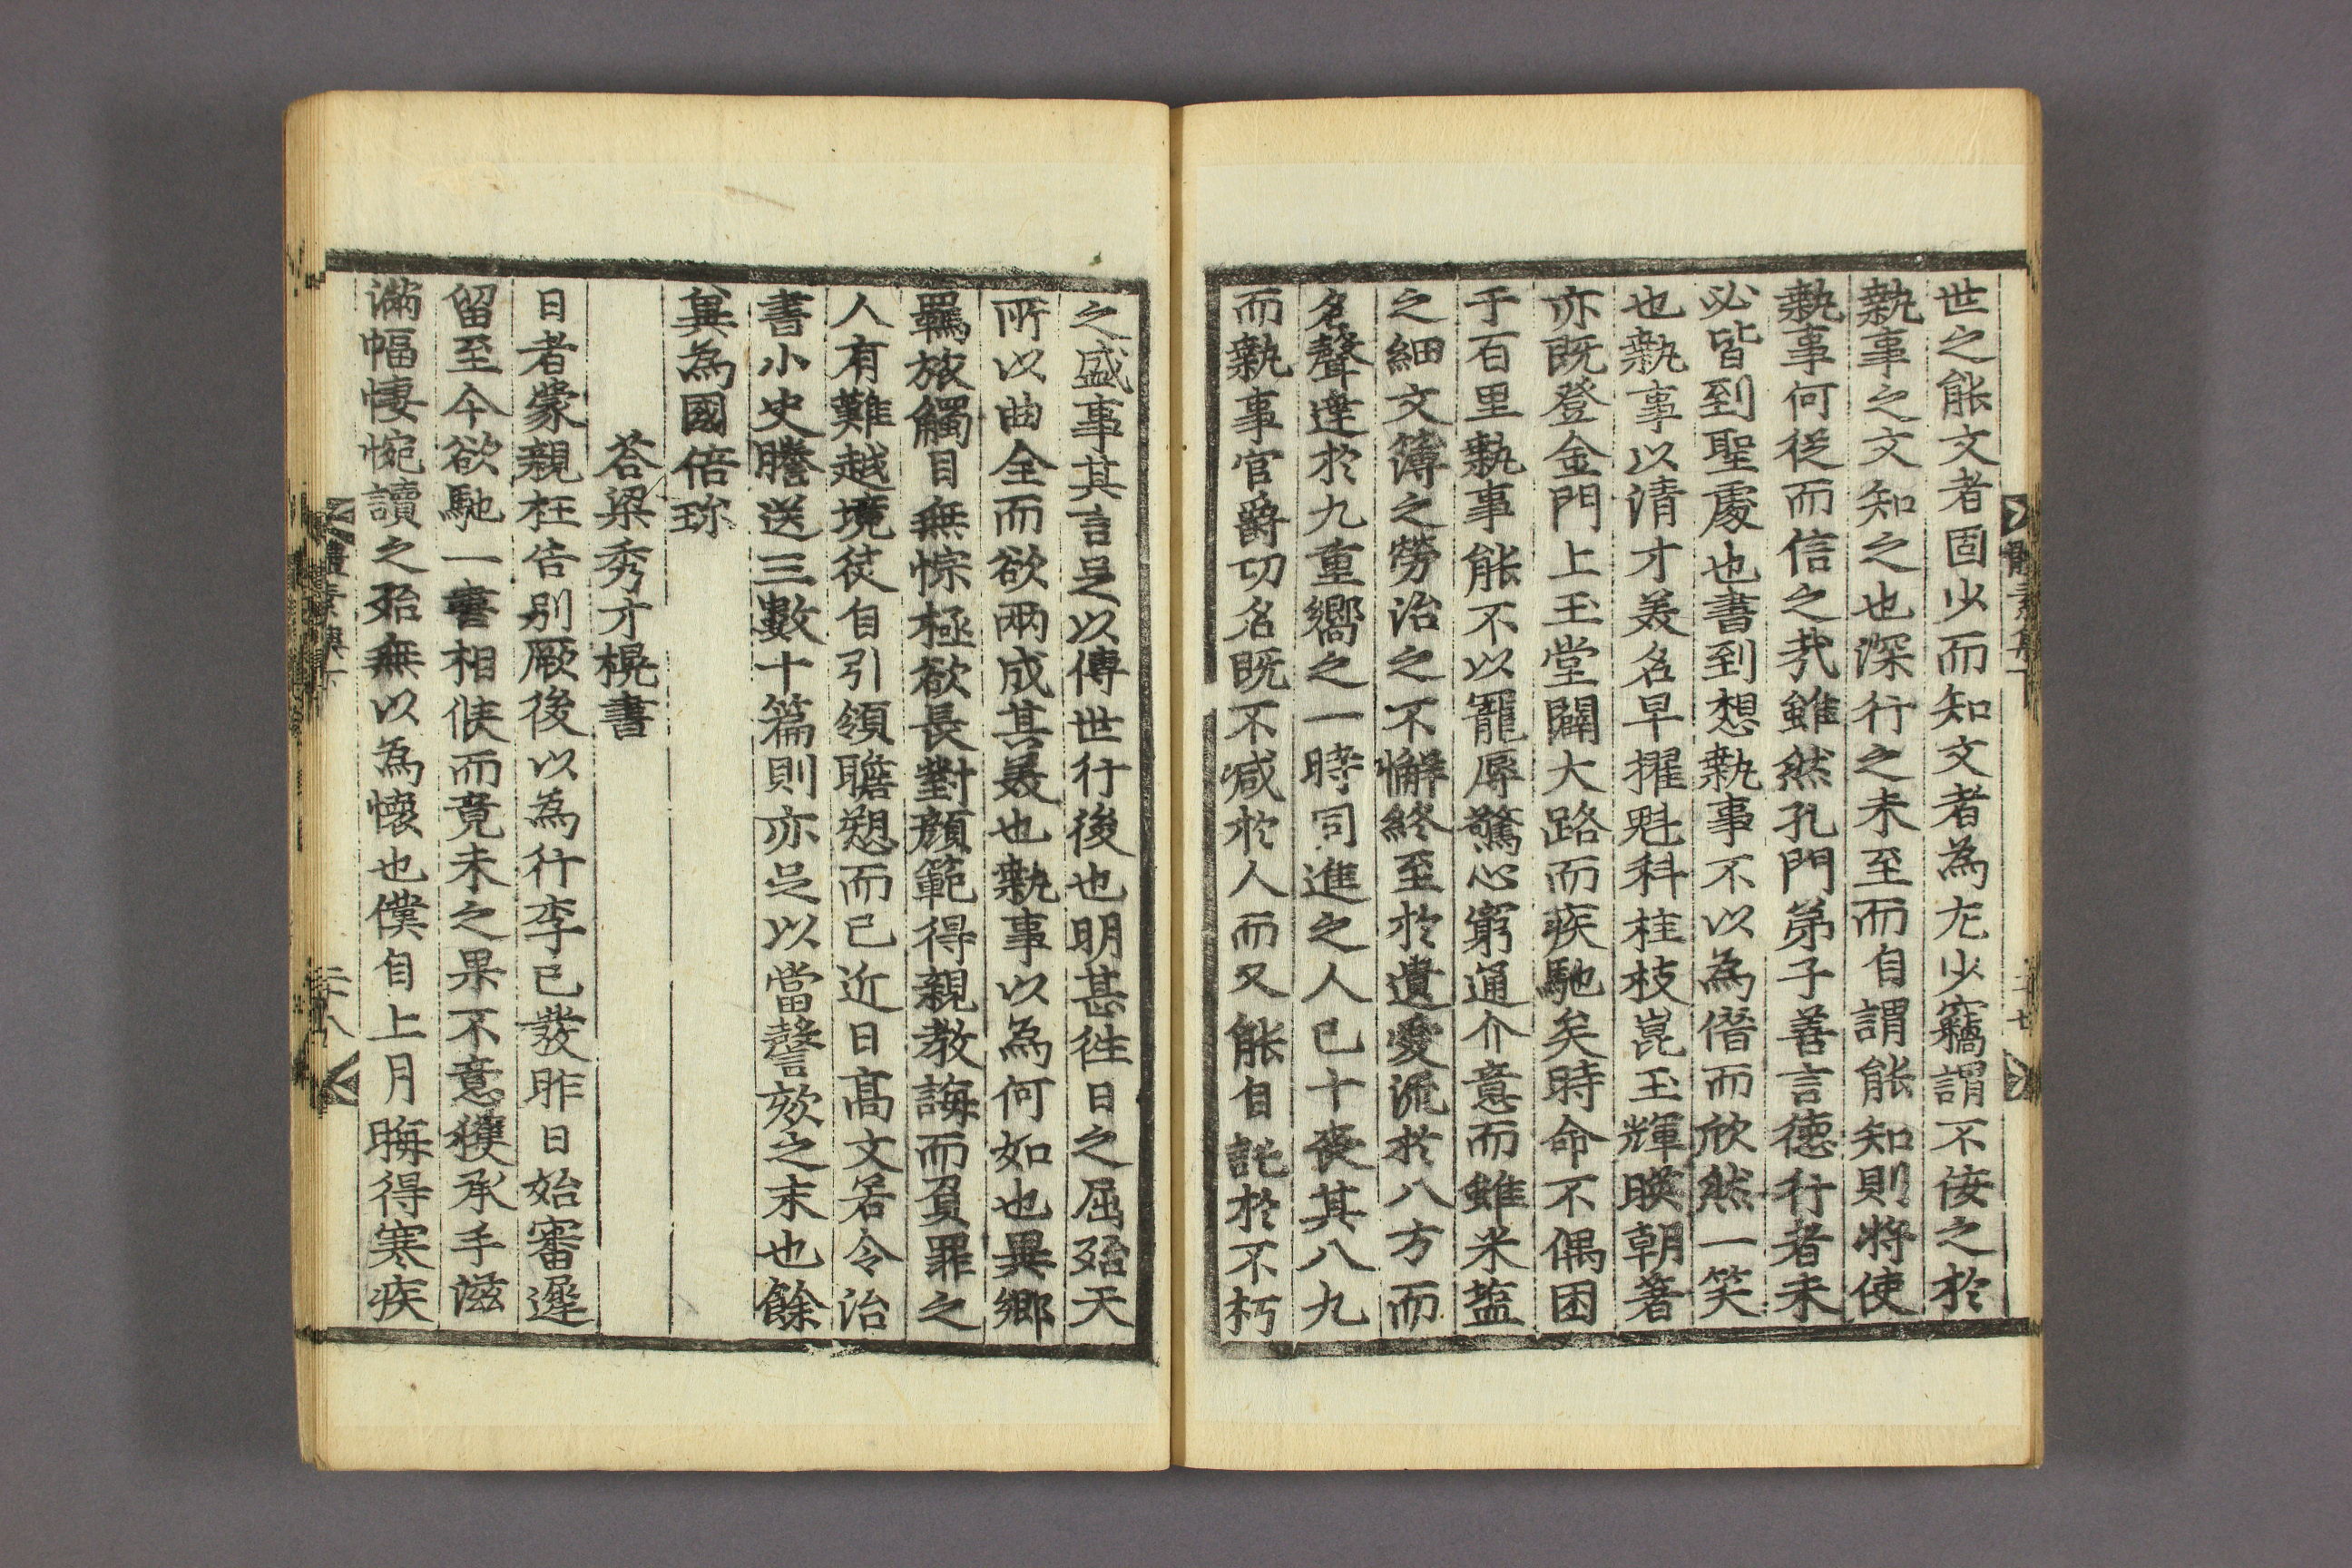 世之能文者固少而知文者為尤少竊謂不佞之於
執事之文知之也深行之未至而自謂能知則將使
執事何從而信之㢤雖然孔門弟子善言德行者未
必皆到聖處也書到想執事不以為僭而欣然一笑
也執事以清才美名早擢魁科桂枝崑玉輝暎朝著
亦既登金門上玉堂闢大路而疾馳矣時命不偶困
于百里執事能不以寵辱驚心窮通介意而雖米鹽
之細文簿之勞治之不懈終至於遺愛流於八方而
名聲達於九重嚮之一時同進之人已十喪其八九
而執事官爵功名既不减於人而又能自託於不朽
之盛事其言足以傳世行後也明甚徃日之屈殆天
所以曲全而欲兩成其美也執事以為何如也異鄉
羈旅觸目無悰極欲長對顏範得親教誨而負罪之
人有難越境徒自引領瞻愬而已近日高文若令治
書小史謄送三數十篇則亦足以當謦欬之末也餘
冀為國倍珎
荅梁秀才榥書
日者蒙親枉告别厥後以為行李已發昨日始審遲
留至今欲馳一書相候而竟未之果不意獲承手滋
滿幅悽惋讀之殆無以為懷也僕自上月晦得寒疾
體素集下
二十八